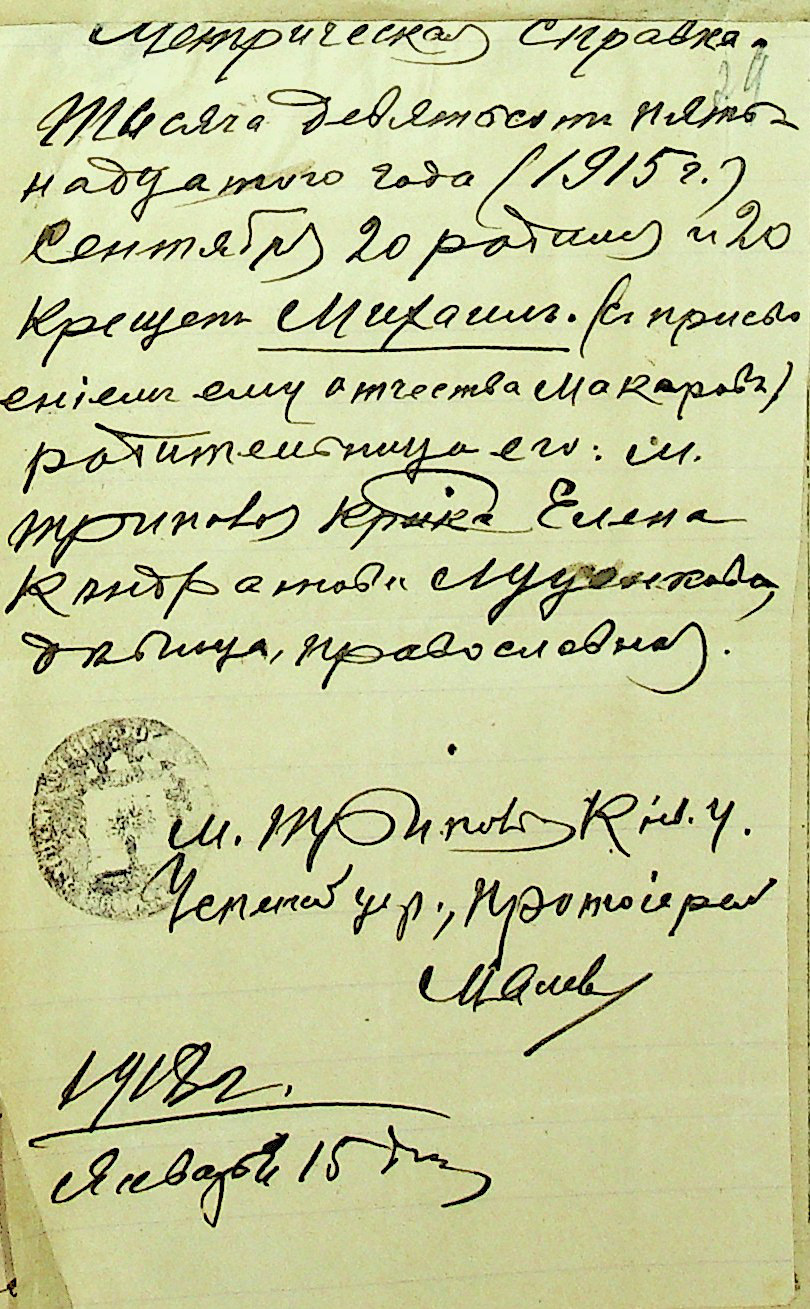 Метрическая справка.
29
Тысяча девятьсотъ пять-
надцатого года (1915 г.)
Сентября 20 родился и 20
крещенъ Михаилъ. (съ присво
еніемъ ему отчества Макаровъ)
родительница его: м.
Триповоя Елена
Кондратова Луценкова,
дѣвица, православная.
м. Триповоя Кіев. у.
Успенской цер., Протоіерей
1918 г.
Января 15 дня